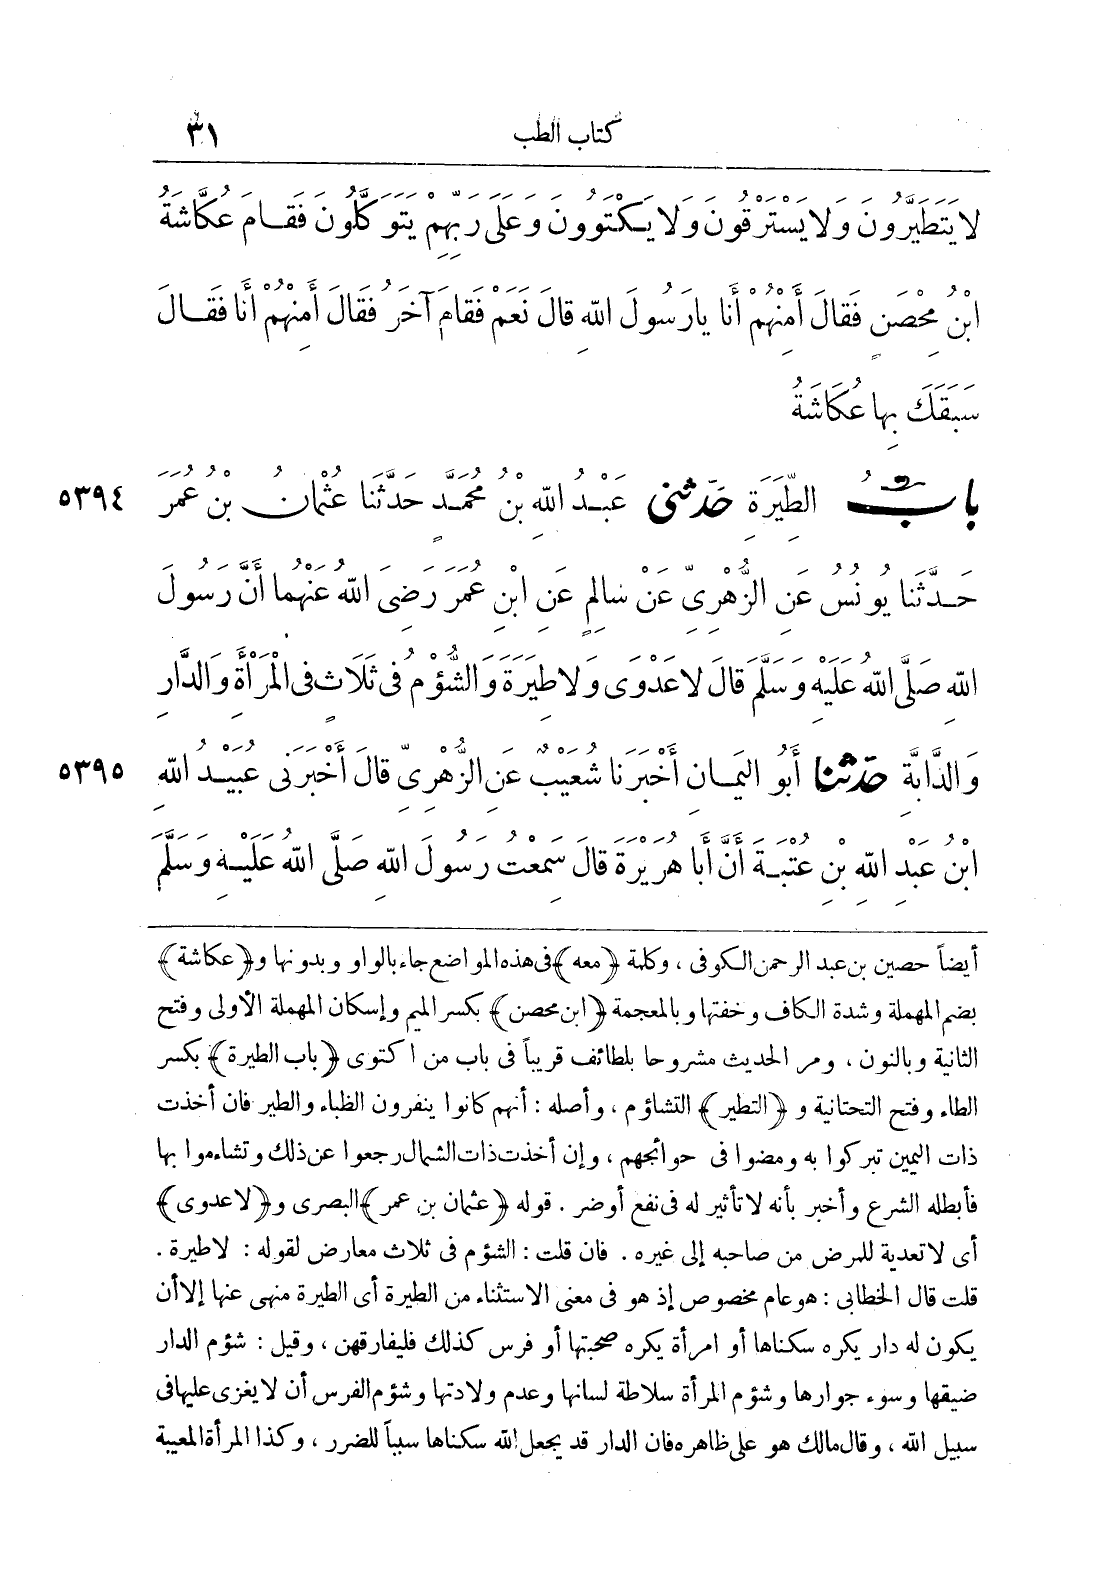 كتاب الطب ٣١
لَا يَتَطَيَّرُونَ وَلَا يَسْتَرْقُونَ وَلَا يَكْتَوُونَ وَعَلَى رَبِّهِمْ يَتَوَكَّلُونَ فَقَامَ عُكَّاشَةُ
ابْنُ مِحْصَنٍ فَقَالَ أَمِنْهُمْ أَنَا يَارَسُولَ اللهِ قَالَ نَعَمْ فَقَامَ آخَرُ فَقَالَ أَمِنْهُمْ أَنَا فَقَالَ
سَبَقَكَ بِهَا عُكَاشَةُ
بَابُ الطِّيَرَةِ حَدَّثَنِي عَبْدُ اللهِ بْنُ مُحَمَّدٍ حَدَّثَنَا عُثْمَانُ بْنُ عُمَرَ ٥٣٩٤
حَدَّثَنَا يُونُسُ عَنِ الزُّهْرِيِّ عَنْ سَالِمٍ عَنِ ابْنِ عُمَرَ رَضِيَ اللهُ عَنْهُمَا أَنَّ رَسُولَ
اللهِ صَلَّى اللهُ عَلَيْهِ وَسَلَّمَ قَالَ لَا عَدْوَى وَلَا طِيَرَةَ وَالشُّؤْمُ فِي ثَلَاثٍ فِي الْمَرْأَةِ وَالدَّارِ
وَالدَّابَّةِ حَدَّثَنَا أَبُو الْيَمَانِ أَخْبَرَنَا شُعَيْبٌ عَنِ الزُّهْرِيِّ قَالَ أَخْبَرَنِي عُبَيْدُ اللهِ ٥٣٩٥
ابْنُ عَبْدِ اللهِ بْنِ عُتْبَةَ أَنَّ أَبَا هُرَيْرَةَ قَالَ سَمِعْتُ رَسُولَ اللهِ صَلَّى اللهُ عَلَيْهِ وَسَلَّمَ
أيضاً حصين بن عبد الرحمن الكوفى ، وكلمة ﴿معه﴾ فى هذه المواضع جاء بالواو وبدونها و﴿عكاشة﴾
بضم المهملة وشدة الكاف وخفتها وبالمعجمة ﴿ابن محصن﴾ بكسر الميم وإسكان المهملة الأولى وفتح
الثانية وبالنون ، ومر الحديث مشروحا بلطائف قريباً فى باب من اكتوى ﴿باب الطيرة﴾ بكسر
الطاء وفتح التحتانية و ﴿التطير﴾ التشاؤم ، وأصله : أنهم كانوا ينفرون الظباء والطير فان أخذت
ذات اليمين تبركوا به ومضوا فى حوائجهم ، وإن أخذت ذات الشمال رجعوا عن ذلك وتشاءموا بها
فأبطله الشرع وأخبر بأنه لا تأثير له فى نفع أو ضر . قوله ﴿عثمان بن عمر﴾ البصرى و﴿لا عدوى﴾
أى لا تعدية للمرض من صاحبه إلى غيره . فان قلت : الشؤم فى ثلاث معارض لقوله : لا طيرة .
قلت قال الخطابى : هو عام مخصوص إذ هو فى معنى الاستثناء من الطيرة أى الطيرة منهى عنها إلا أن
يكون له دار يكره سكناها أو امرأة يكره صحبتها أو فرس كذلك فليفارقهن ، وقيل : شؤم الدار
ضيقها وسوء جوارها وشؤم المرأة سلاطة لسانها وعدم ولادتها وشؤم الفرس أن لا يغزى عليها فى
سبيل الله ، وقال مالك هو على ظاهره فان الدار قد يجعل الله سكناها سبباً للضرر ، وكذا المرأة المعيبة